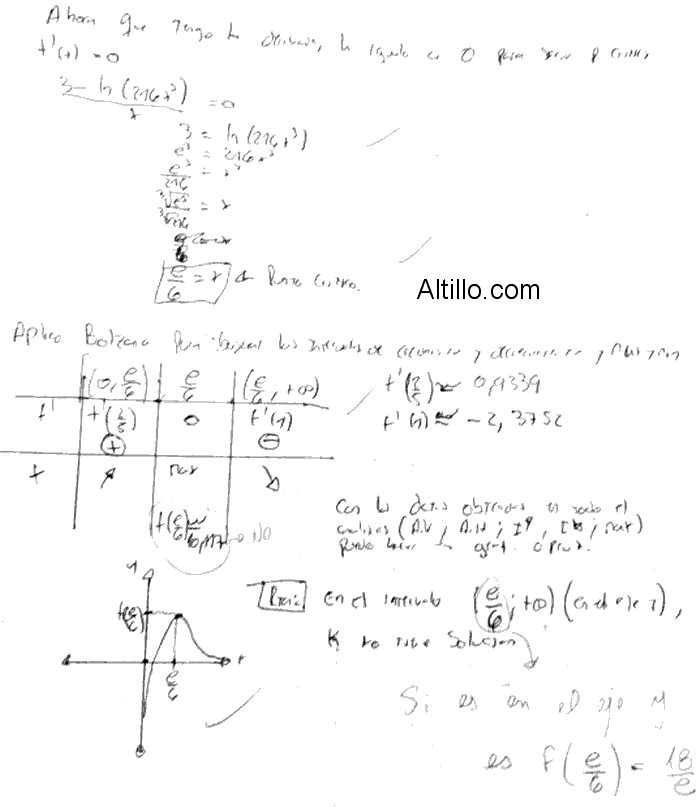 Ahora que tengo la derivada, la igualo a 0 para sacar p. críticos
f'(x) = 0
3 - ln(216x³) / x = 0
3 = ln(216x³)
e³ = 216x³
e³/216 = x³
³√e³ / ³√216 = x
e/6 = x
e/6 = x Punto Crítico.
Altillo.com
Aplico Bolzano para buscar los intervalos de crecimiento y decrecimiento y
(0, e/6) e/6 (e/6; +∞)
f'(2/5) ≈ 0,9339
f' f'(2/5) 0 f'(1)
f'(1) ≈ -2,3752
⊕ ⊖
f ↗ max ↘
f(e/6) ≈ NO
Con los datos obtenidos en todo el
análisis (A.V; A.H; I↑, I↓; max)
puedo hacer graf. aprox.
y
f(e/6)
x
e/6
En el intervalo (e/6; +∞) (en el eje x),
K no tiene solución
Si es en el eje y
es f(e/6) = 18/e